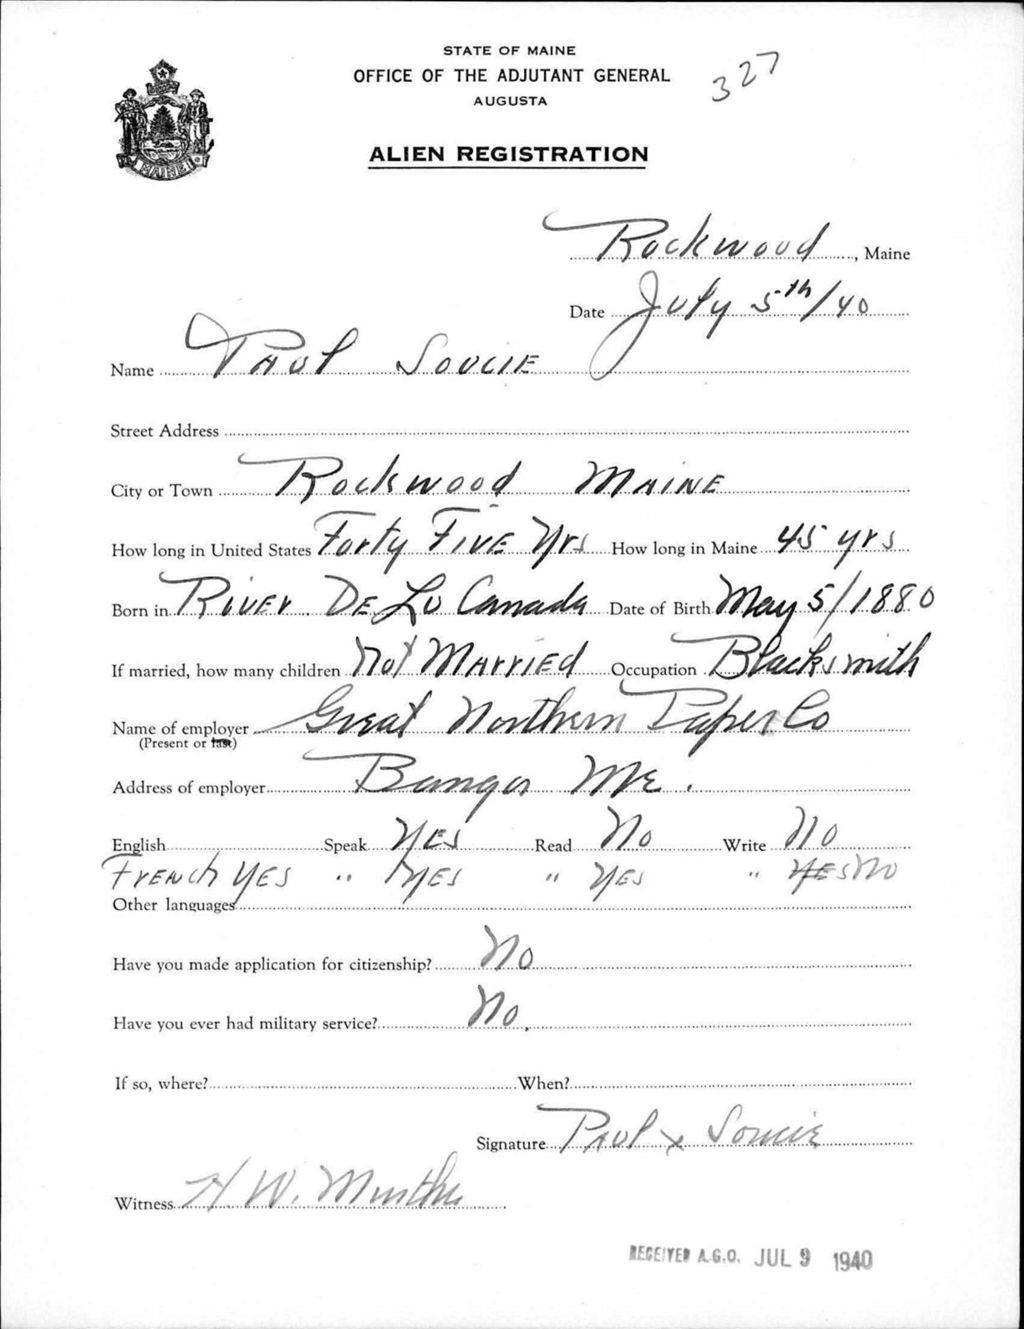 STATE OF MAINE
OFFICE OF THE ADJUTANT GENERAL
AUGUSTA
327
ALIEN REGISTRATION
MAINE
Rockwood, Maine
Date July 5th/40
Name Paul Soucie
Street Address
City or Town Rockwood Maine
How long in United States Forty Five Yrs How long in Maine 45 yrs
Born in River De Lu Canada Date of Birth May 5/1880
If married, how many children Not Married Occupation Blacksmith
Name of employer Great Northern Paper Co
(Present or last)
Address of employer Bangor Me.
English Speak Yes Read No Write No
French Yes " Yes " Yes " Yes No
Other languages
Have you made application for citizenship? No
Have you ever had military service? No.
If so, where? When?
Signature Paul x Soucie
Witness H. W.
RECEIVED A.G.O. JUL 9 1940